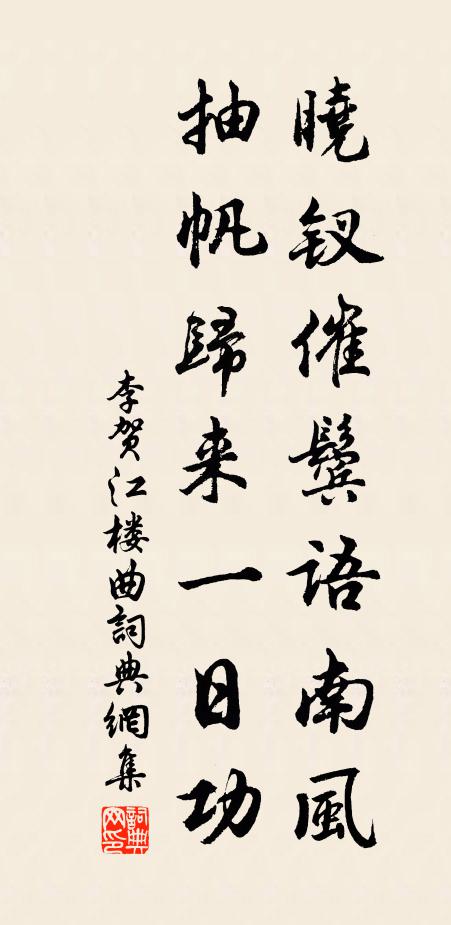 曉釵催鬢語南風
抽帆歸来一日功
李贺江楼曲詞典網集
詞典网印